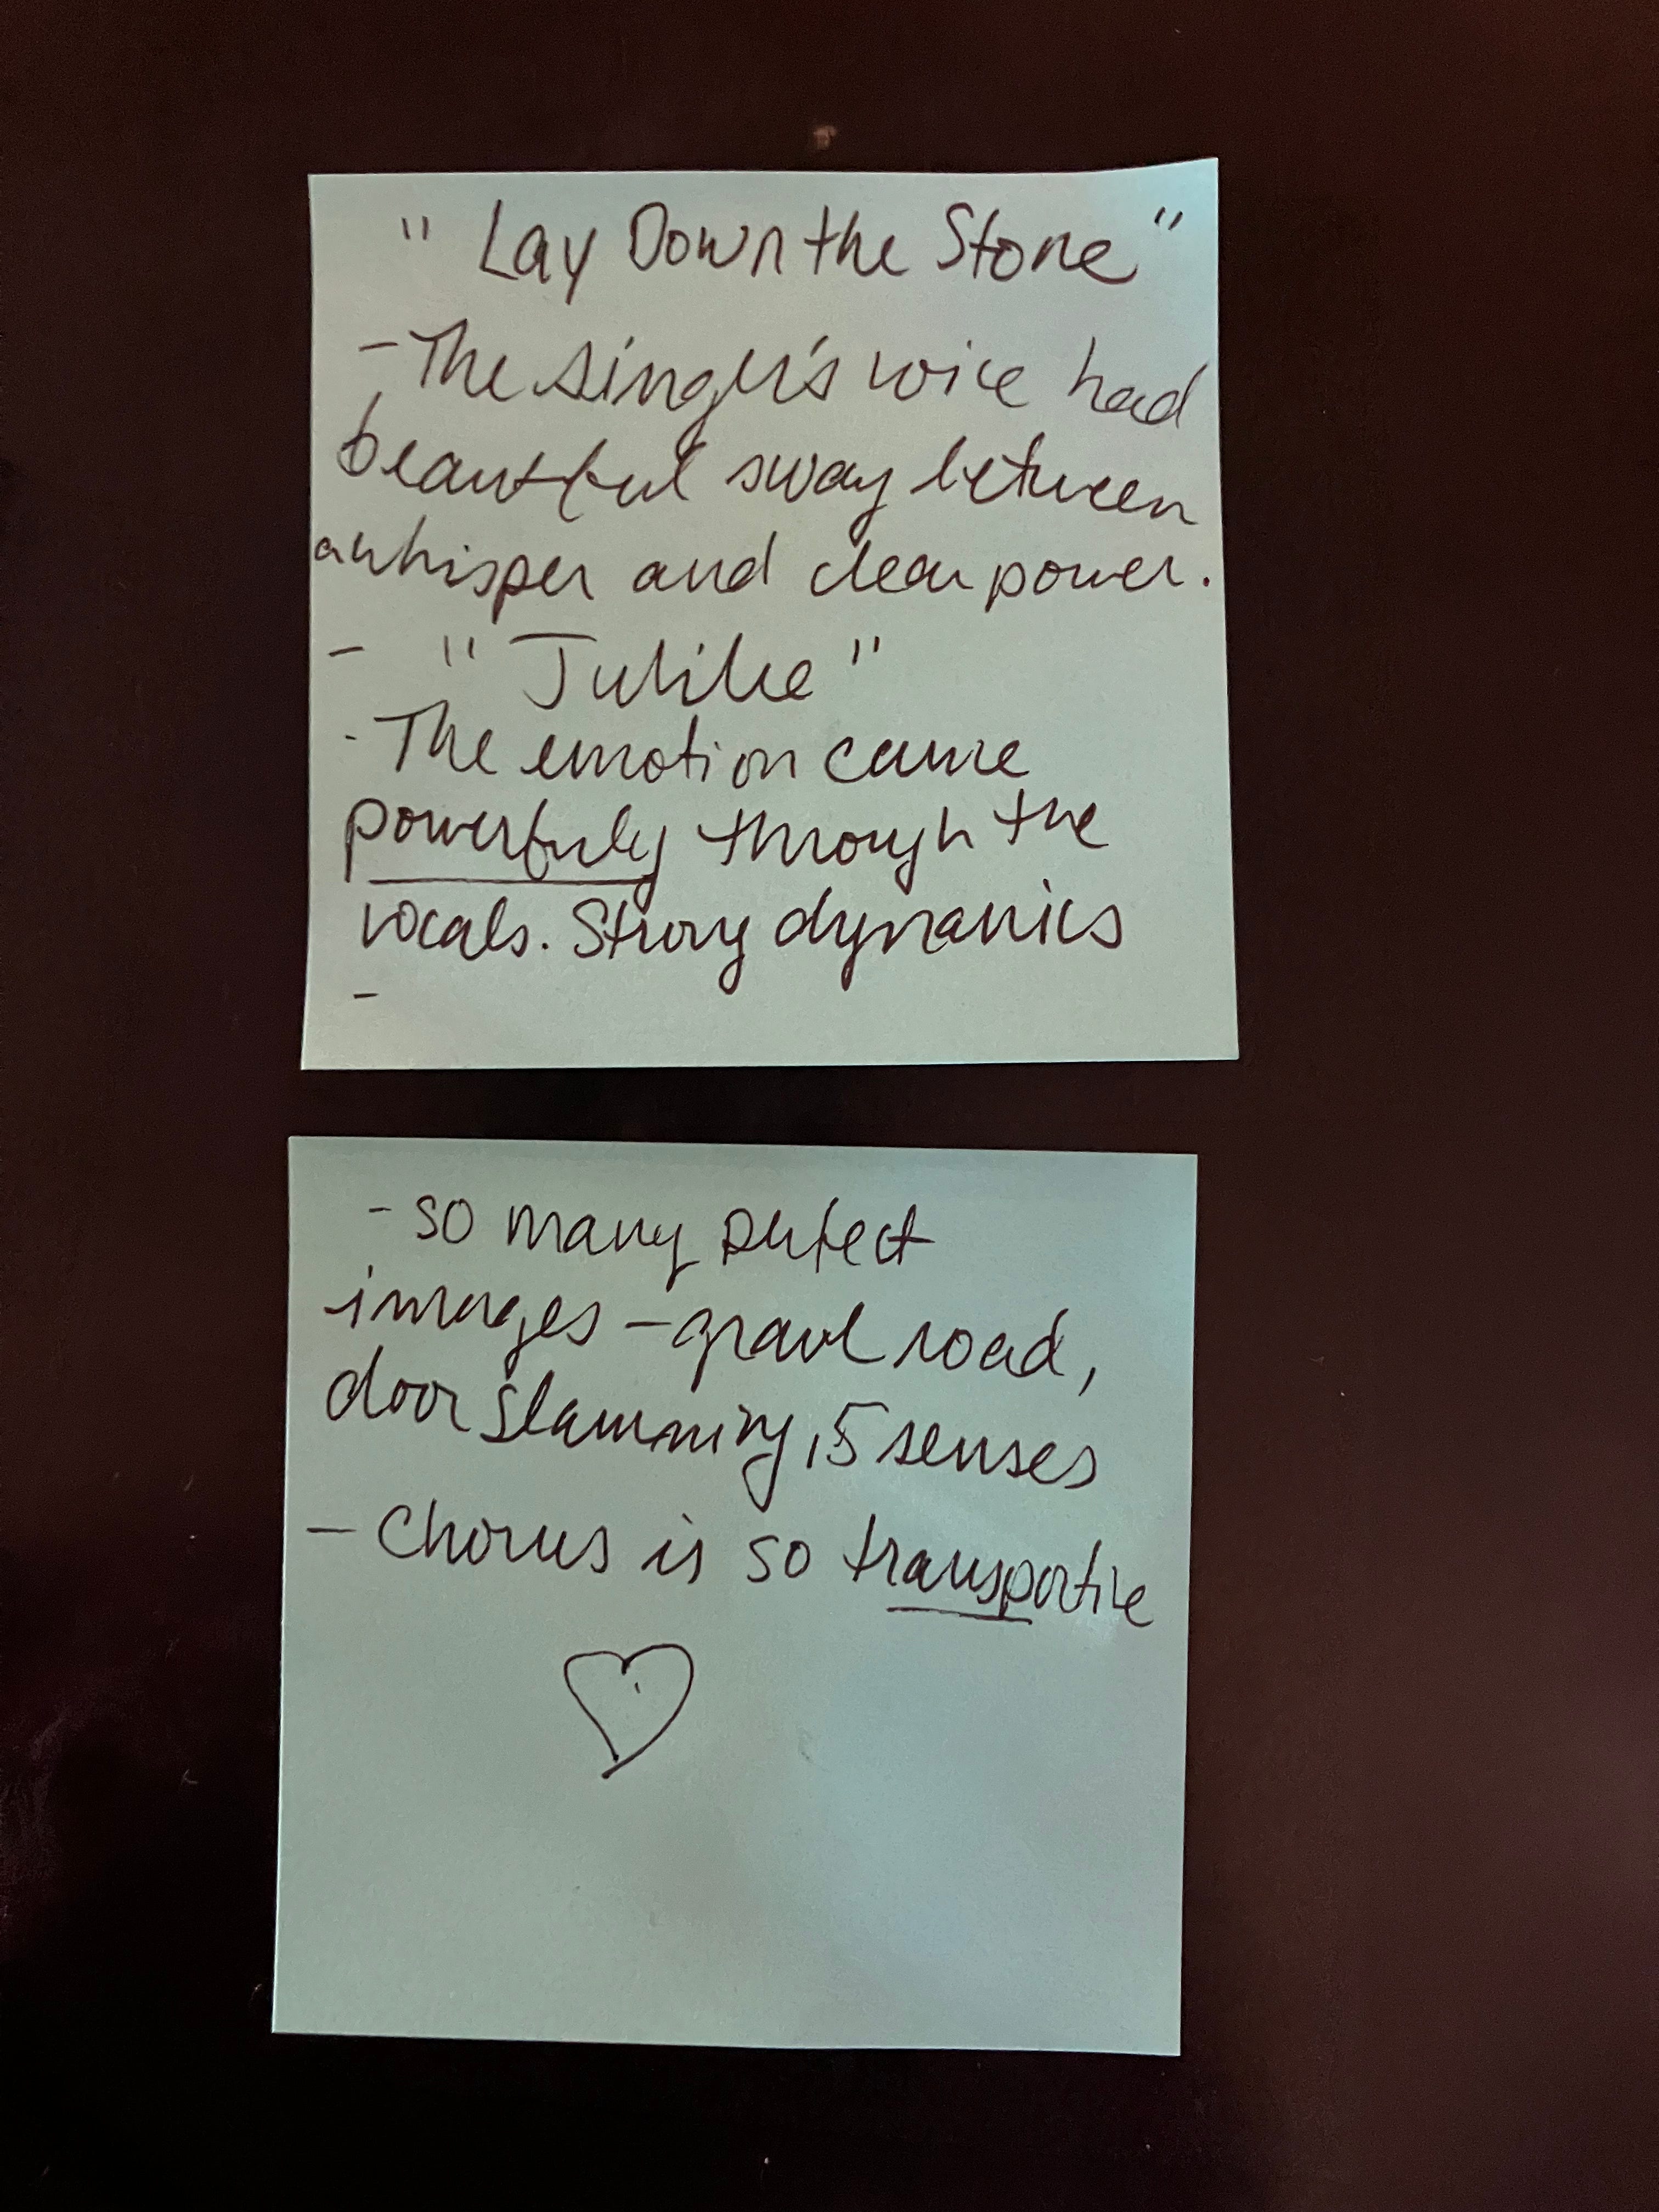 " Lay Down the Stone "
- The singer's voice had
beautiful sway between
a whisper and clear power.
- " Jubilee "
- The emotion came
powerfully through the
vocals. Strong dynamics
-
- so many perfect
images - gravel road,
door slamming, 5 senses
- Chorus is so transportive